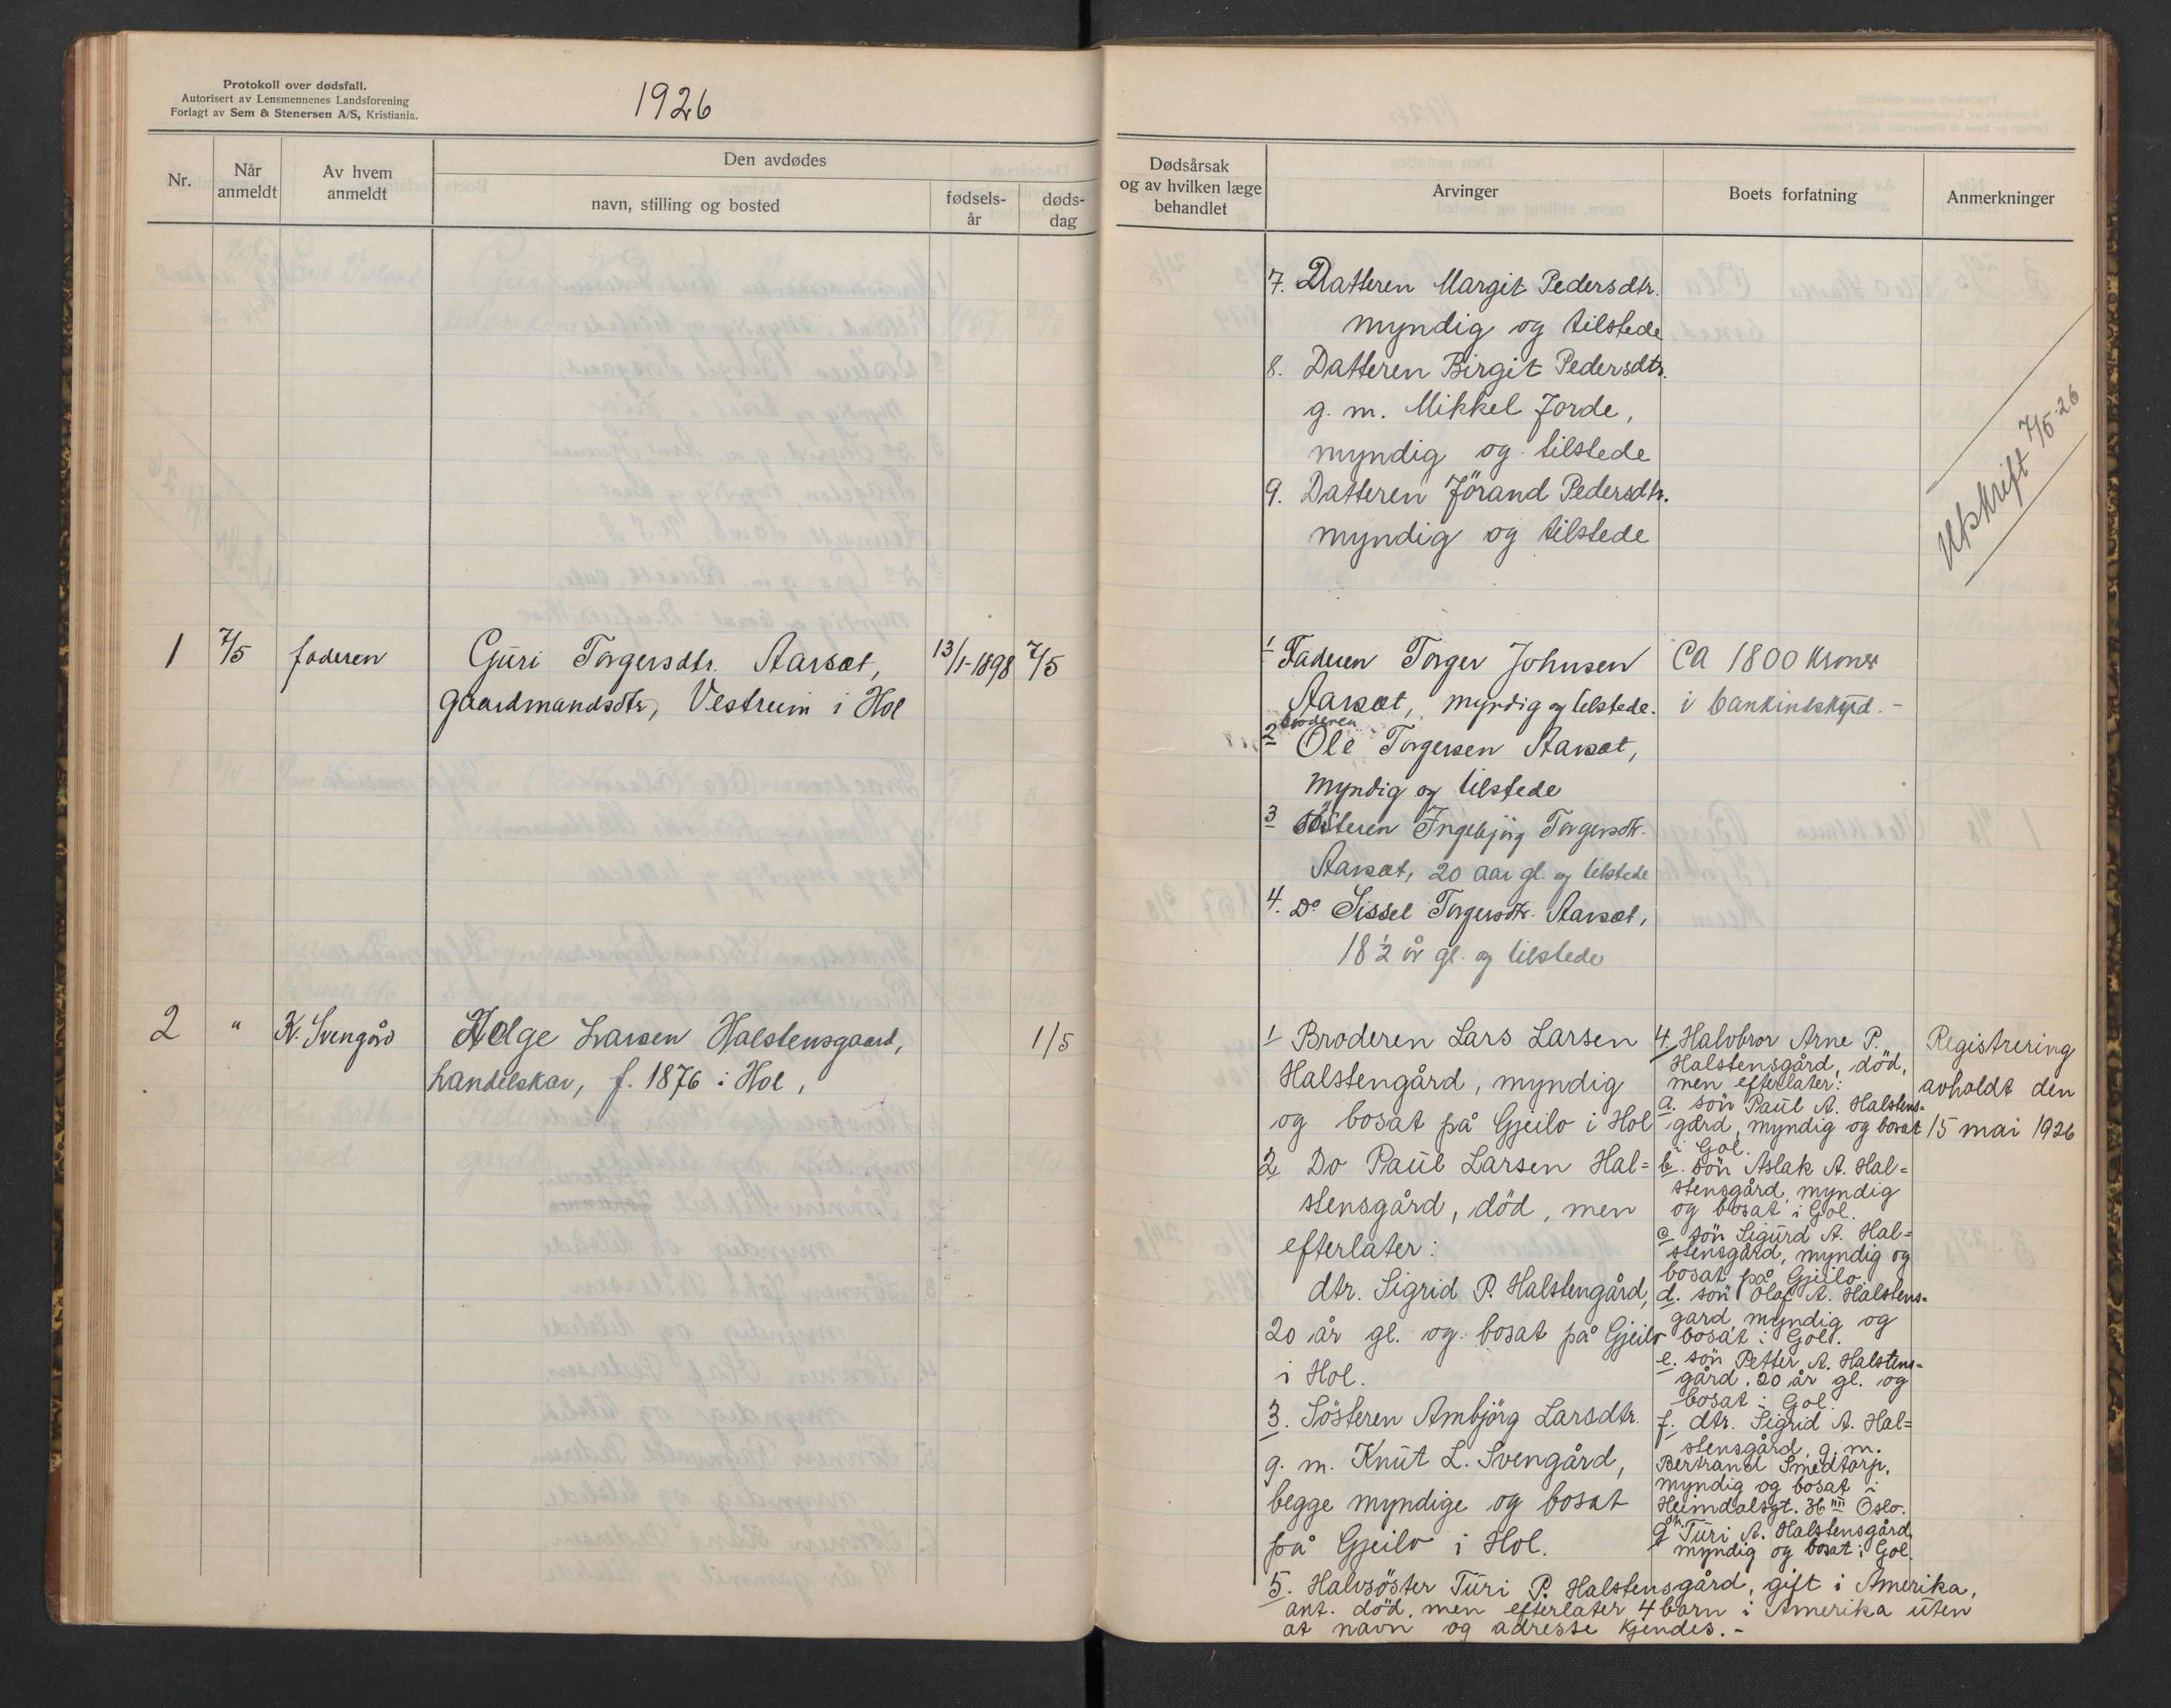 Protokoll over dødsfall.
Autorisert av Lensmennenes Landsforening
Forlagt av Sem & Stenersen A/S, Kristiania.
1926
Nr.
Når
anmeldt
Av hvem
anmeldt
Den avdødes
navn, stilling og bosted
fødsels-
år
døds-
dag
Dødsårsak
og av hvilken læge
behandlet
Arvinger
Boets forfatning
Anmerkninger
7. Datteren Margit Pedersdtr.
myndig og tilstede
8. Datteren Birgit Pedersdtr.
g. m. Mikkel Jorde,
myndig og tilstede
9. Datteren Jörand Pedersdtr.
myndig og tilstede
Utskrift 7/5-26
1 7/5 faderen Guri Torgersdtr. Aarsæt, 13/1-1898 7/5
gaardmandsdtr, Vestreim i Hol
1 Faderen Torger Johnsen
Aarsæt, myndig og tilstede.
broderen
2 Ole Torgersen Aarsæt,
myndig og tilstede
3 Søsteren Ingebjørg Torgersdtr.
Aarsæt, 20 aar gl. og tilstede
4. Do Sissel Torgersdtr. Aarsæt,
18 1/2 år gl. og tilstede
Ca 1800 kroner
i bankindskud.-
2 " K. Svengård Helge Larsen Halstensgaard, 1/5
handelskar, f. 1876 i Hol,
1 Broderen Lars Larsen
Halstengård, myndig
og bosat på Gjeilo i Hol
2 Do Paul Larsen Hal=
stensgård, död, men
efterlater:
dtr. Sigrid P. Halstengård,
20 år gl. og bosat på Gjeilo
i Hol.
3. Sösteren Ambjörg Larsdtr.
g. m. Knut L. Svengård,
begge myndige og bosat
på Gjeilo i Hol.
4. Halvbror Arne P.
Halstensgård, död,
men efterlater:
a. sön Paul A. Halstens-
gård, myndig og bosat
i Gol.
b. sön Aslak A. Hal=
stensgård, myndig
og bosat i Gol.
c. sön Sigurd A. Hal=
stensgård, myndig og
bosat på Gjeilo.
d. sön Olaf A. Halstens-
gard, myndig og
bosat i Gol.
e. sön Petter A. Halstens-
gård, 20 år gl. og
bosat i Gol.
f. dtr. Sigrid A. Hal=
stensgård, g. m.
Bertrand Smedtorp,
myndig og bosat i
Heimdalsgt. Oslo.
g Turi A. Halstensgård,
myndig og bosat i Gol.
5. Halvsöster Turi P. Halstensgård, gift i Amerika,
ant. död, men efterlater 4 barn i Amerika uten
at navn og adresse kjendes.-
Registrering
avholdt den
15 mai 1926